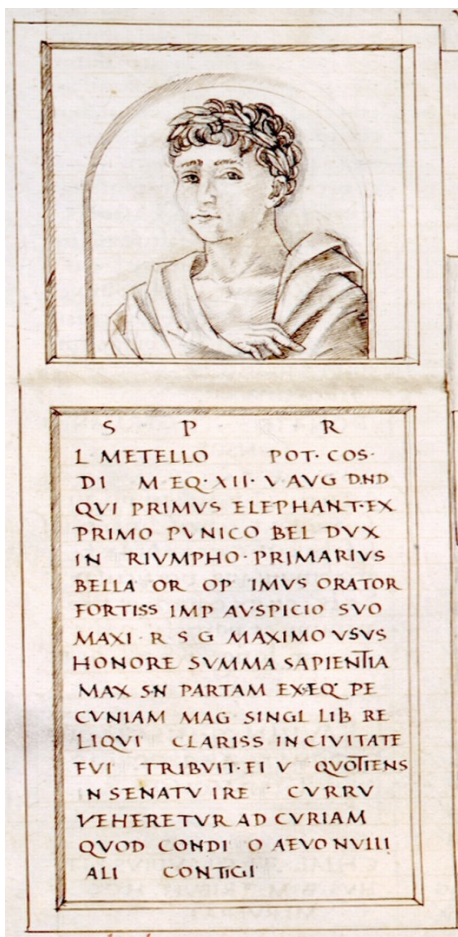 S P · R
L · METELLO POT · COS ·
DI M · EQ · XII · V · AVG D·ND
QVI PRIMVS ELEPHANT · EX
PRIMO PVNICO BEL DVX
IN RIVMPHO · PRIMARIVS
BELLA OR OP IMVS ORATOR
FORTISS IMP AVSPICIO SVO
MAXI · R S G MAXIMO VSVS
HONORE SVMMA SAPIENTIA
MAX S·N PARTAM EX·EQ PE
CVNIAM MAG SINGL LIB RE
LIQVI CLARISS IN CIVITATE
FVI TRIBVIT · EI V QVOTIENS
IN SENATV IRE CVRRV
VEHERETVR AD CVRIAM
QVOD CONDI O AEVO NVIII
ALI CONTIGI